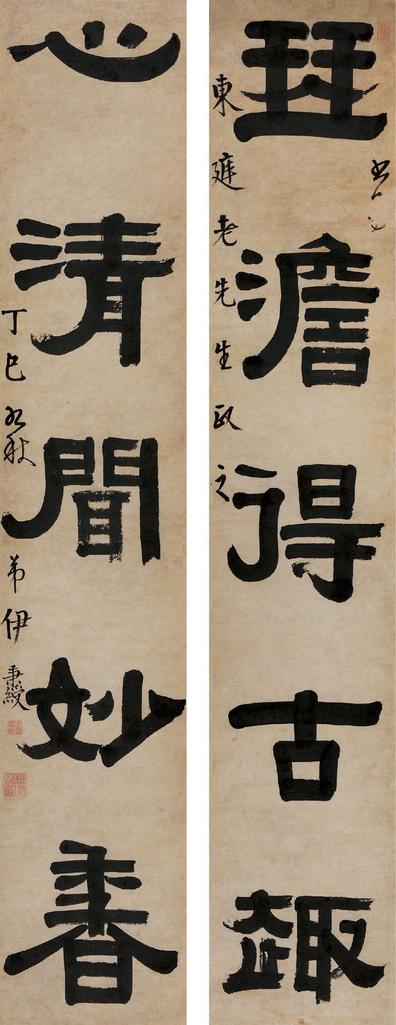 琴澹得古趣
東老先生政之
心清聞妙香
丁巳九秋弟伊秉綬